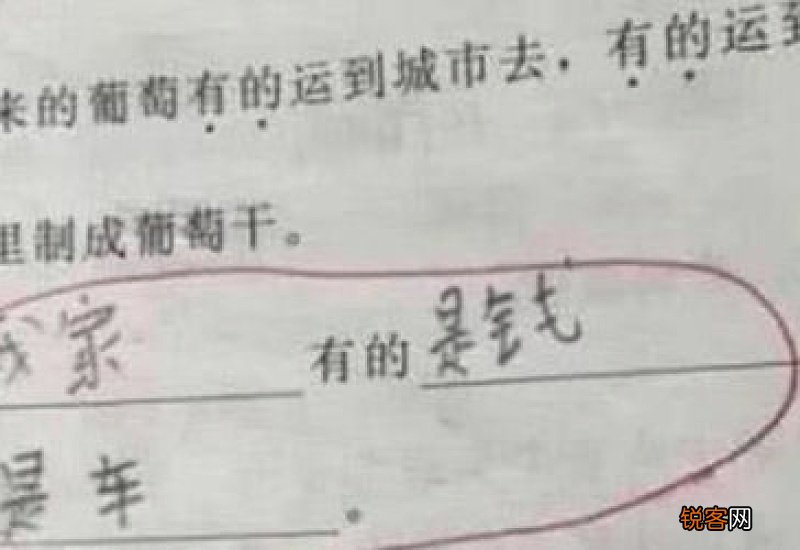 来的葡萄有的运到城市去，有的运到
里制成葡萄干。
我家 有的是钱
是车。
锐客网